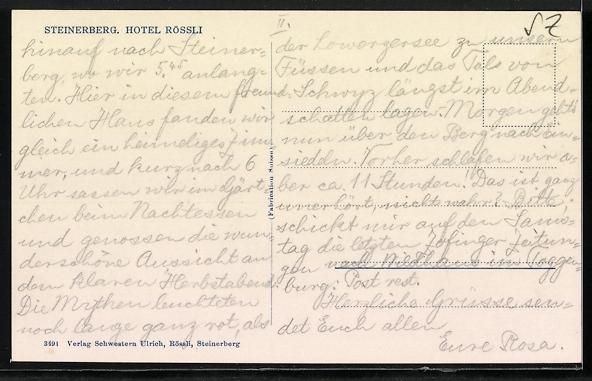 STEINERBERG. HOTEL RÖSSLI
hinauf nach Steiner=
berg, wo wir 5.45 anlang=
ten. Hier in diesem freund=
lichen Haus fanden wir
gleich ein heimeliges Zim=
mer, und kurz nach 6
Uhr sassen wir im Gärt=
chen beim Nachtessen
und genossen die wun=
derschöne Aussicht an
dem klaren Herbstabend.
Die Mythen leuchteten
noch lange ganz rot, als
3491 Verlag Schwestern Ulrich, Rössli, Steinerberg
(Fabrication Suisse)
II.
der Lowerzersee zu unsern
Füssen und das Tal von
Schwyz längst im Abend=
schatten lagen. Morgen geht's
nun über den Berg nach Ein=
siedeln. Vorher schlafen wir a=
ber ca. 11 Stunden. Das ist ganz
unerhört, nicht wahr? Bitte
schickt mir auf den Sams=
tag die letzten Zofinger Zeitun=
gen nach Wildhaus im Toggen=
burg. Post rest.
Herzliche Grüsse sen=
det Euch allen
Eure Rosa.